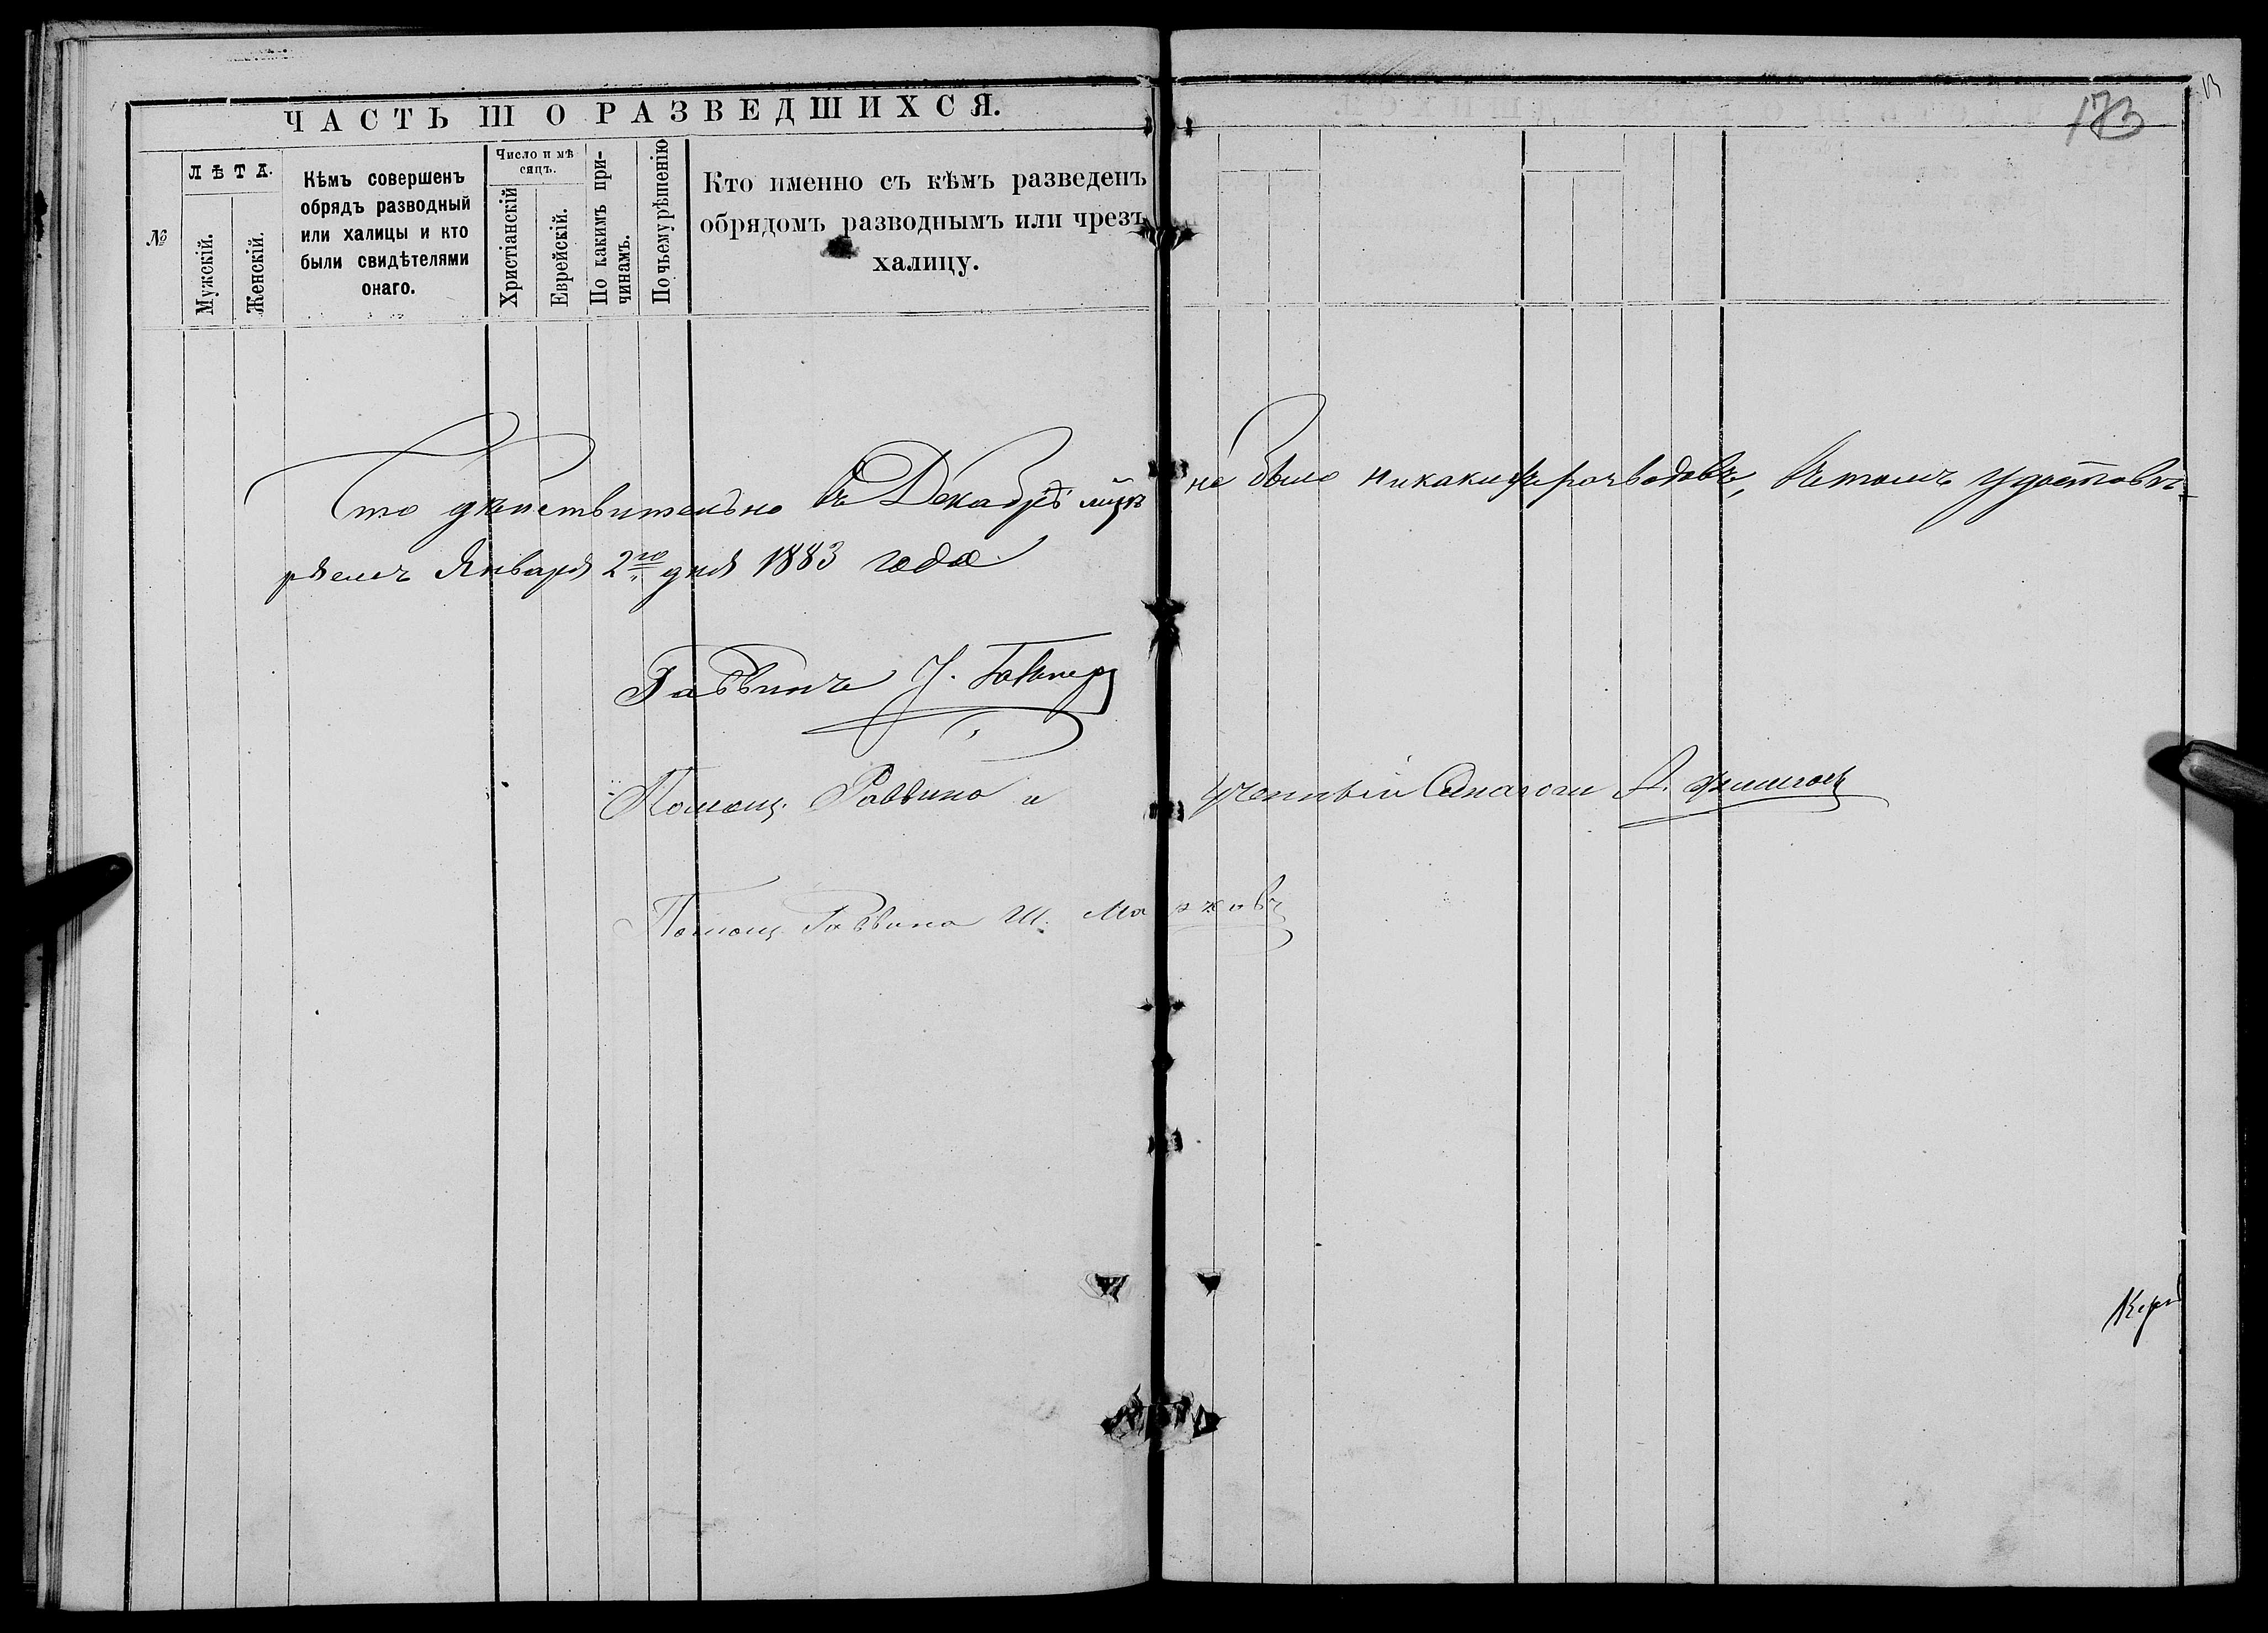 ЧАСТЬ III О РАЗВЕДШИХСЯ.
№
ЛѢТА.
Мужскій.
Женскій.
Кѣмъ совершенъ
обрядъ разводный
или халицы и кто
были свидѣтелями
онаго.
Число и мѣ
сяцъ.
Христіанскій
Еврейскій.
По какимъ при-
чинамъ.
По чьему рѣшенію
Кто именно съ кѣмъ разведенъ
обрядомъ разводнымъ или чрезъ
халицу.
173
13
Что дѣйствительно въ Декабрѣ мцѣ не было никакихъ розводовъ, въ томъ удостовѣ-
ряемъ Января 2го дня 1883 года
Раввинъ
Помощ. Раввина и Ученный Синагоги
Помощ. Раввина Ш.